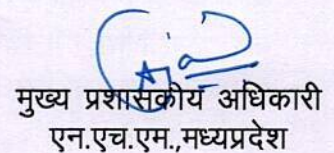 मुख्य प्रशासकीय अधिकारी
एन.एच.एम.,मध्यप्रदेश